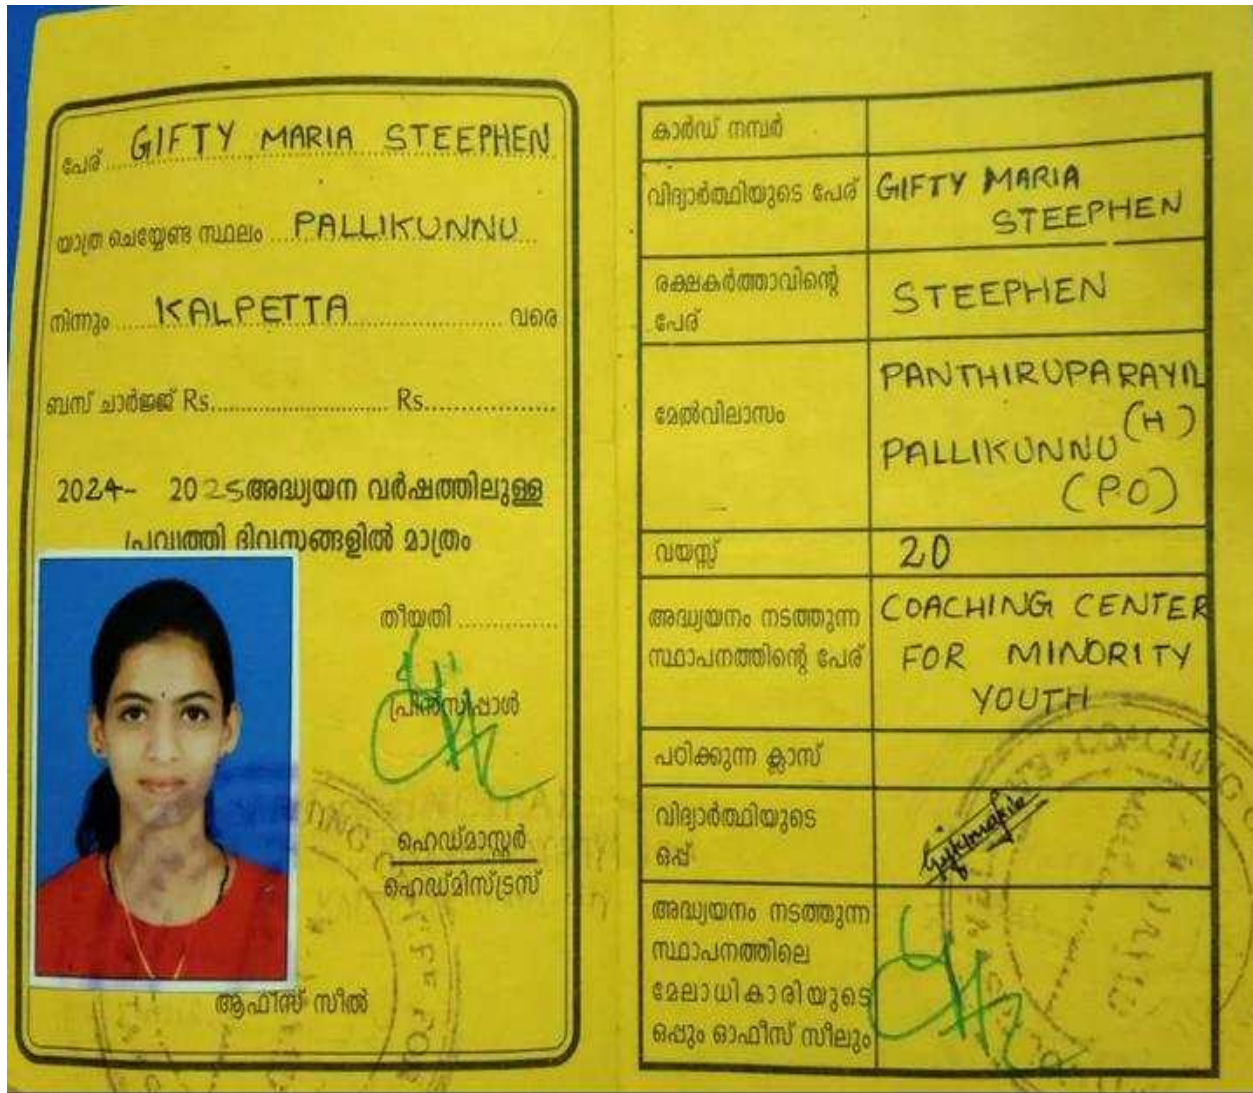 പേര് GIFTY MARIA STEEPHEN
യാത്ര ചെയ്യേണ്ട സ്ഥലം PALLIKUNNU
നിന്നും KALPETTA വരെ
ബസ് ചാർജ്ജ് Rs. Rs.
2024- 2025 അദ്ധ്യയന വർഷത്തിലുള്ള
പ്രവൃത്തി ദിവസങ്ങളിൽ മാത്രം
തീയതി
പ്രിൻസിപ്പാൾ
ഹെഡ്മാസ്റ്റർ
ഹെഡ്മിസ്ട്രസ്
ആഫീസ് സീൽ
കാർഡ് നമ്പർ
വിദ്യാർത്ഥിയുടെ പേര് GIFTY MARIA
STEEPHEN
രക്ഷകർത്താവിന്റെ
പേര്
STEEPHEN
മേൽവിലാസം
PANTHIRUPARAYIL
(H)
PALLIKUNNU
(PO)
വയസ്സ് 20
അദ്ധ്യയനം നടത്തുന്ന
സ്ഥാപനത്തിന്റെ പേര്
COACHING CENTER
FOR MINORITY
YOUTH
പഠിക്കുന്ന ക്ലാസ്
വിദ്യാർത്ഥിയുടെ
ഒപ്പ്
അദ്ധ്യയനം നടത്തുന്ന
സ്ഥാപനത്തിലെ
മേലാധികാരിയുടെ
ഒപ്പും ഓഫീസ് സീലും